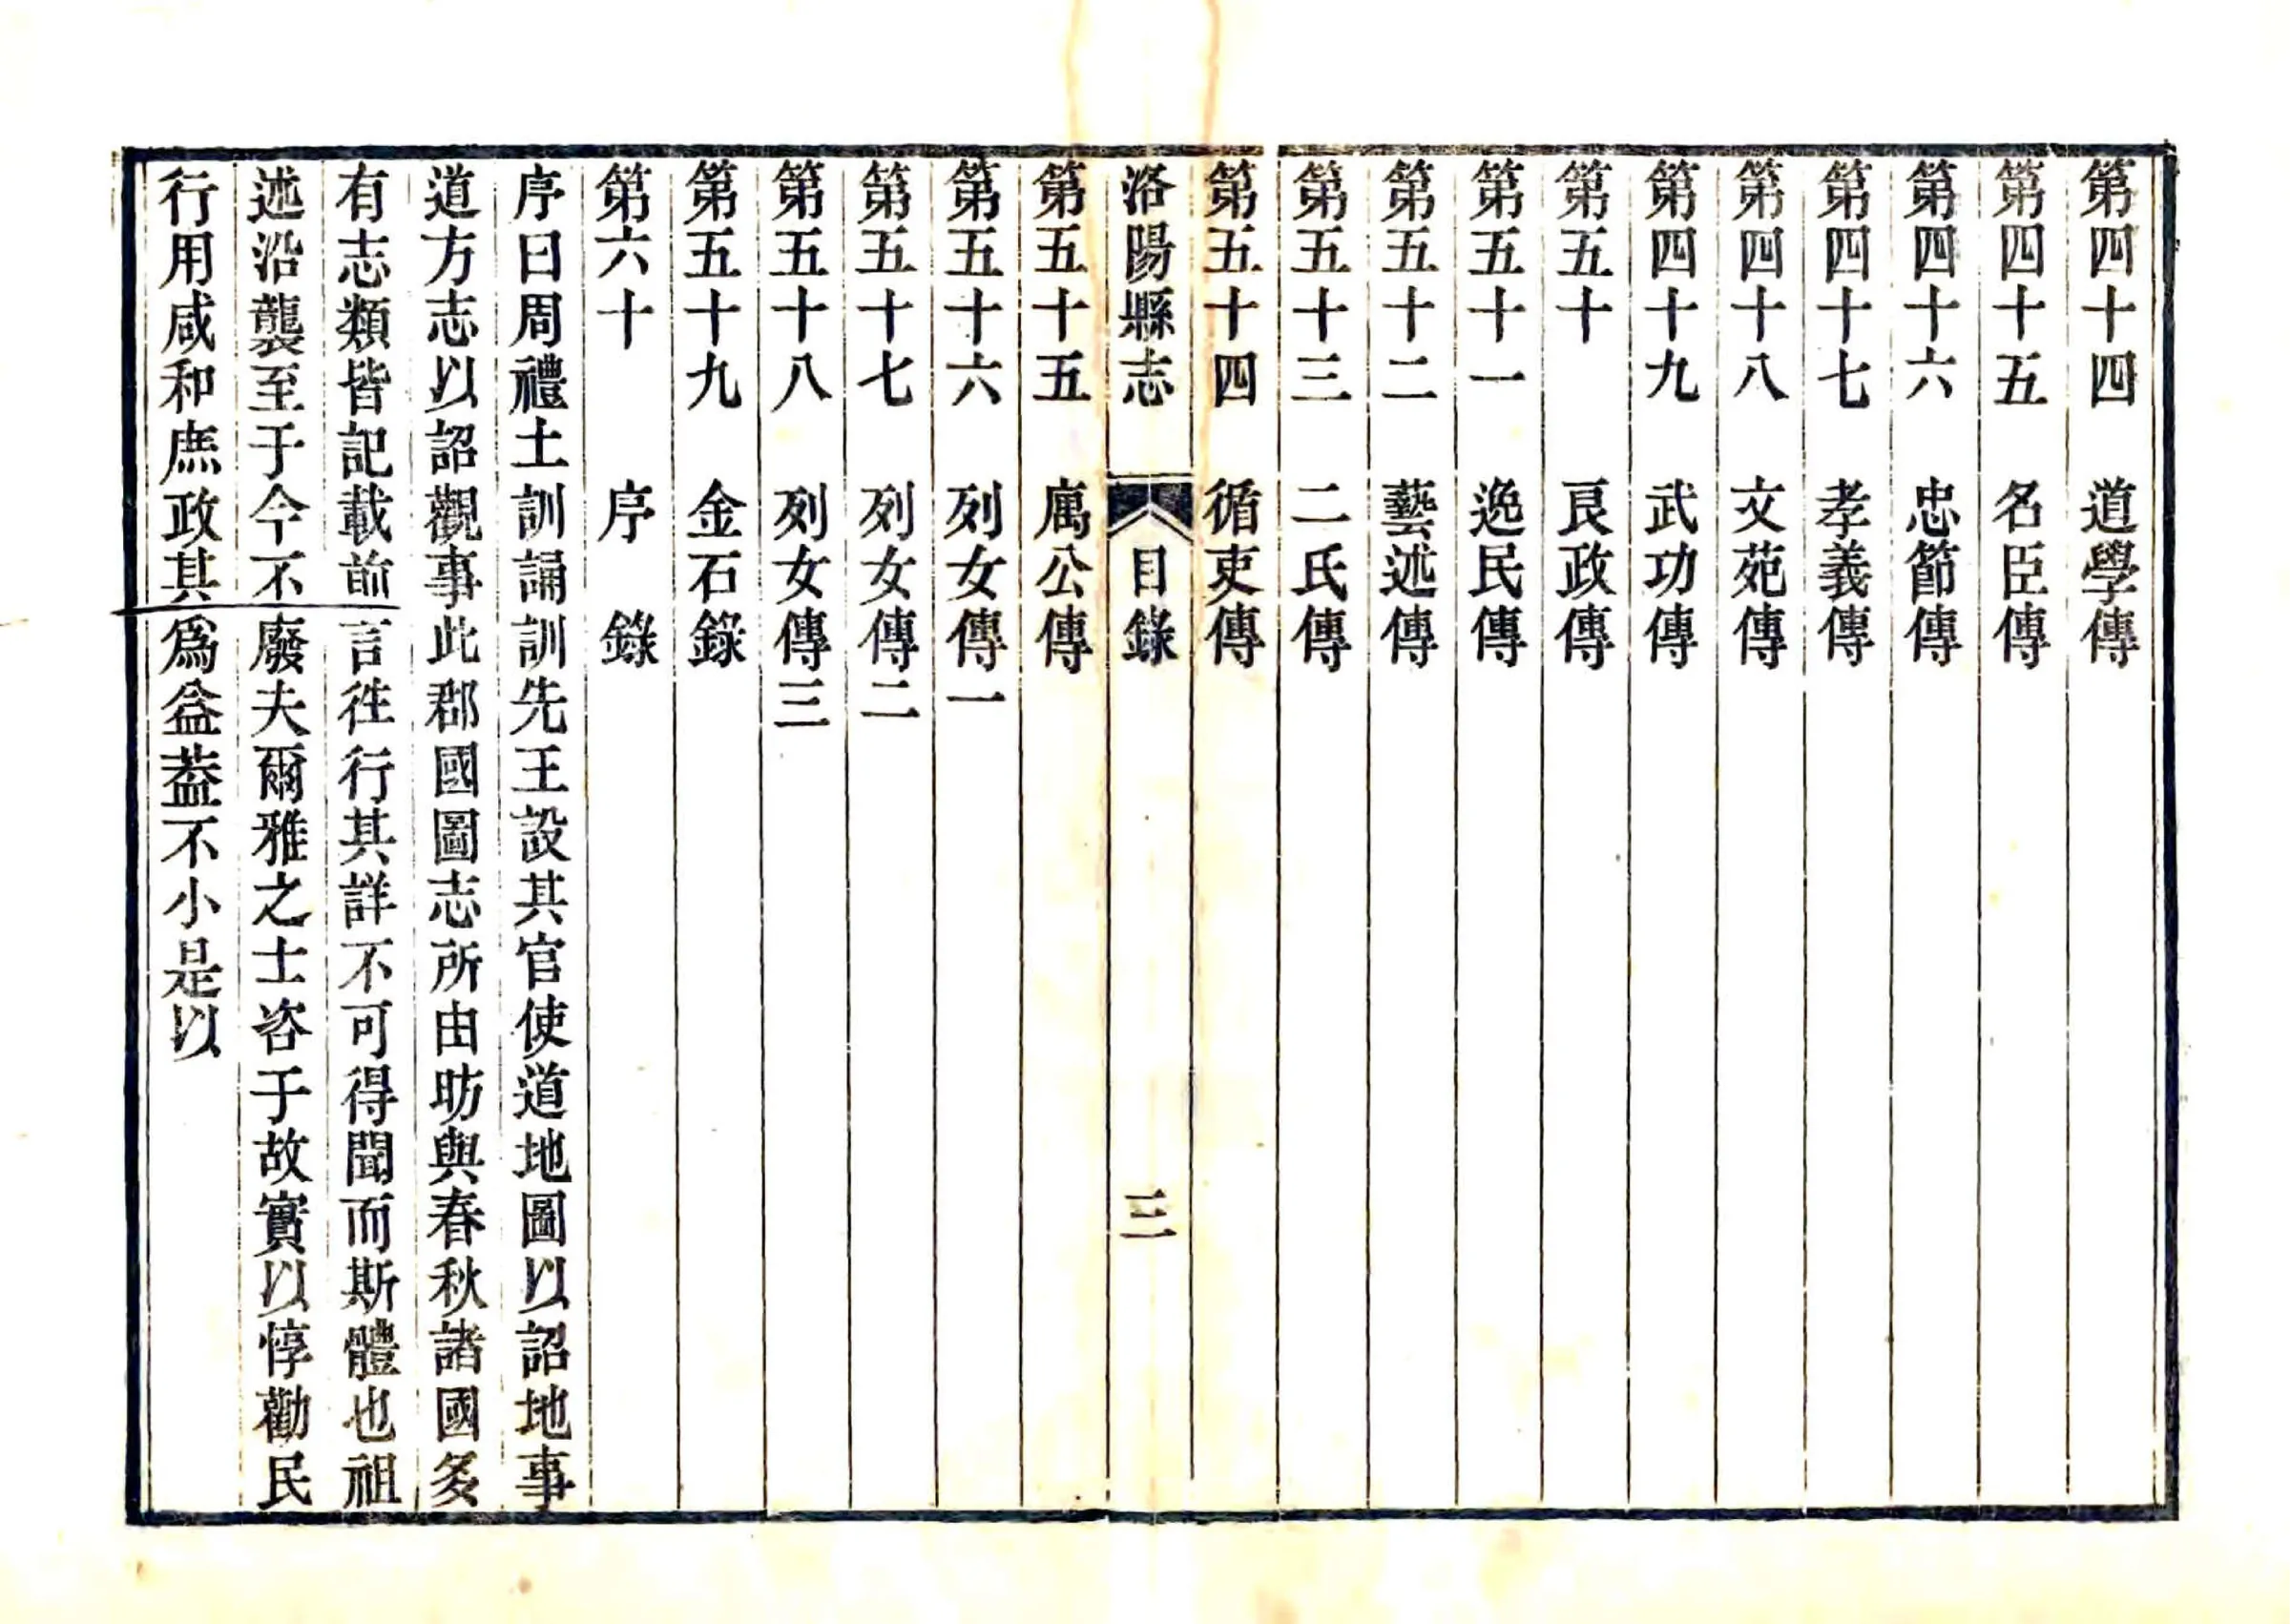 第四十四 道學傳
第四十五 名臣傳
第四十六 忠節傳
第四十七 孝義傳
第四十八 文苑傳
第四十九 武功傳
第五十 良政傳
第五十一 逸民傳
第五十二 藝述傳
第五十三 二氏傳
第五十四 循吏傳
洛陽縣志 目錄 三
第五十五 寓公傳
第五十六 列女傳一
第五十七 列女傳二
第五十八 列女傳三
第五十九 金石錄
第六十 序錄
序曰周禮土訓誦訓先王設其官使道地圖以詔地事
道方志以詔觀事此郡國圖志所由昉與春秋諸國多
有志類皆記載前言徃行其詳不可得聞而斯體也祖
述沿襲至于今不廢夫爾雅之士咨于故實以惇勸民
行用咸和庶政其爲益葢不小是以